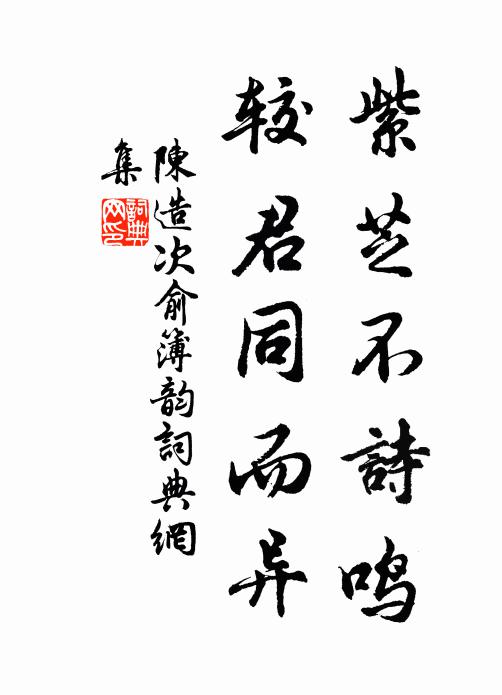 紫芝不詩鸣
较君同而异
陳造次俞簿韵詞典網
集
詞典
网印